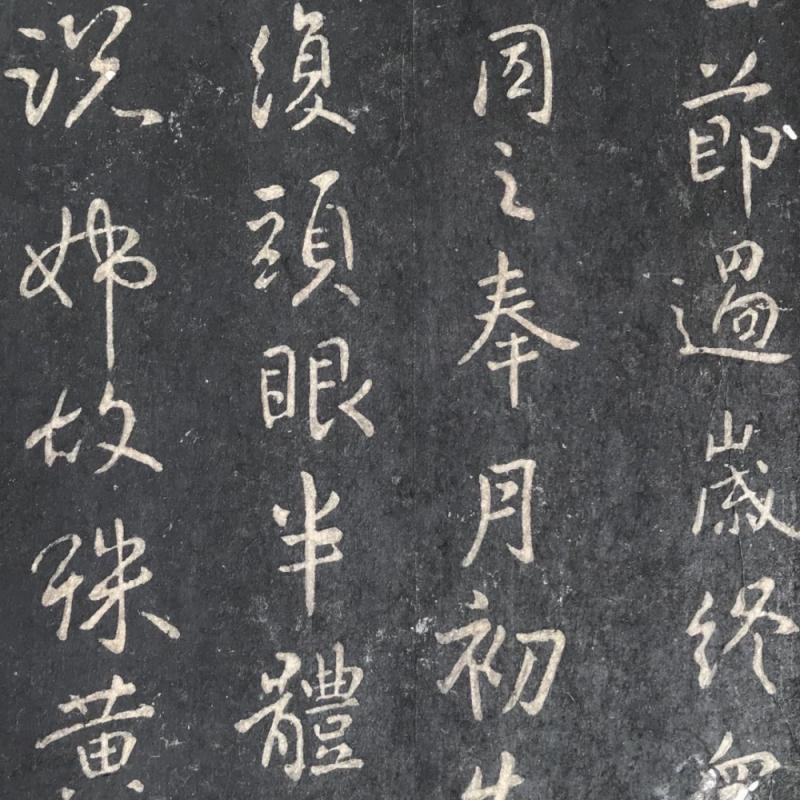 節過歲終衆
因之奉月初
復頭眼半體
說姊故殊黄